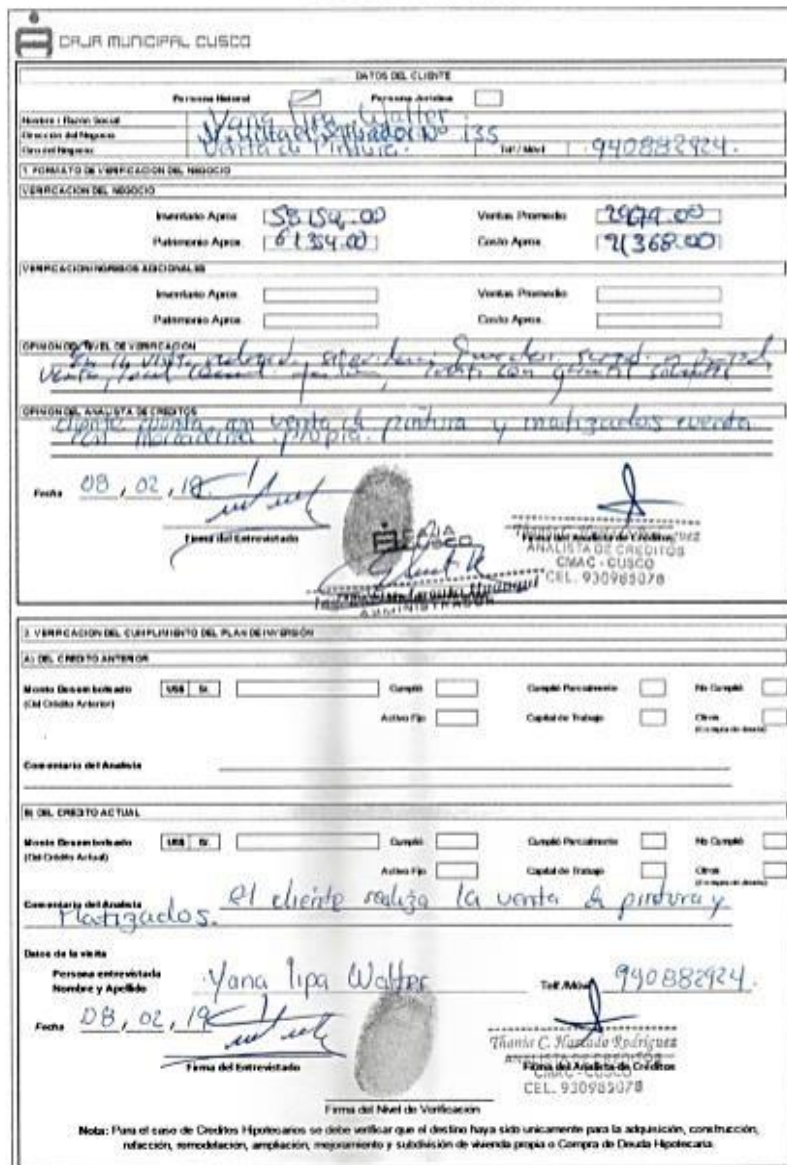 CAJA MUNICIPAL CUSCO
DATOS DEL CLIENTE
Persona Natural Persona Jurídica
Nombre / Razón Social Yana Tipa Walter
Dirección del Negocio Salvador Nº 135
Giro del Negocio Venta de Telf / Móvil 940882924.
1. FORMATO DE VERIFICACION DEL NEGOCIO
VERIFICACION DEL NEGOCIO
Inventario Aprox. Ventas Promedio
Patrimonio Aprox. 61354.00 Costo Aprox. 21368.00
VERIFICACION INGRESOS ADICIONALES
Inventario Aprox. Ventas Promedio
Patrimonio Aprox. Costo Aprox.
OPINION DEL NIVEL DE VERIFICACION
En la visita
venta, local con
OPINION DEL ANALISTA DE CREDITOS
cliente cuenta con venta de pintura y matizados cuenta
con propia.
Fecha 08, 02, 19
Firma del Entrevistado CAJA CUSCO Firma del Analista de Créditos
ANALISTA DE CREDITOS
CMAC - CUSCO
CEL. 930985078
ADMINISTRADOR
2. VERIFICACION DEL CUMPLIMIENTO DEL PLAN DE INVERSIÓN
A) DEL CREDITO ANTERIOR
Monto Desembolsado US$ S/. Cumplió Cumplió Parcialmente No Cumplió
(Del Crédito Anterior) Activo Fijo Capital de Trabajo Otros
(Compra de deuda)
Comentario del Analista
B) DEL CREDITO ACTUAL
Monto Desembolsado US$ S/. Cumplió Cumplió Parcialmente No Cumplió
(Del Crédito Actual) Activo Fijo Capital de Trabajo Otros
(Compra de deuda)
Comentario del Analista el cliente realiza la venta de pintura y
Matizados.
Datos de la visita
Persona entrevistada
Nombre y Apellido Yana Tipa Walter Telf /Móvil 940882924.
Fecha 08, 02, 19
Firma del Entrevistado Thania C. Hurtado Rodríguez
ANALISTA DE CREDITOS
Firma del Analista de Créditos
CMAC - CUSCO
CEL. 930985078
Firma del Nivel de Verificación
Nota: Para el caso de Creditos Hipotecarios se debe verificar que el destino haya sido unicamente para la adquisición, construcción,
refacción, remodelación, ampliación, mejoramiento y subdivisión de vivienda propia o Compra de Deuda Hipotecaria.